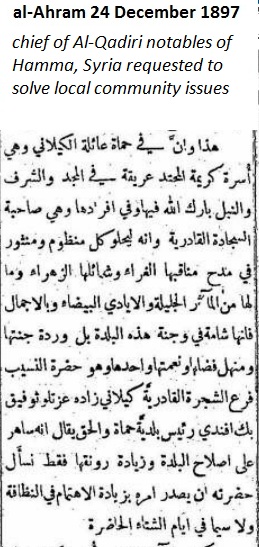 al-Ahram 24 December 1897
chief of Al-Qadiri notables of
Hamma, Syria requested to
solve local community issues
هذا وانَّ في حماة عائلة الكيلاني وهي
أسرة كريمة المحتد عريقة في المجد والشرف
والنبل بارك الله فيها وفي افرادها وهي صاحبة
السجادة القادرية وانه ليحلو كل منظوم ومنثور
في مدح مناقبها الغراء وشمائلها الزهراء وما
لها من المآثر الجليلة والايادي البيضاء وبالاجمال
فانها شامة في وجنة هذه البلدة بل وردة جنتها
ومنهل فضلها ونعمتها واحدها وهو حضرة النسيب
فرع الشجرة القادرية كيلاني زاده عزتلو توفيق
بك افندي رئيس بلدية حماة والحق يقال انه ساهر
على اصلاح البلدة وزيادة رونقها فقط نسأل
حضرته ان يصدر امره بزيادة الاهتمام في النظافة
ولا سيما في ايام الشتاء الحاضرة